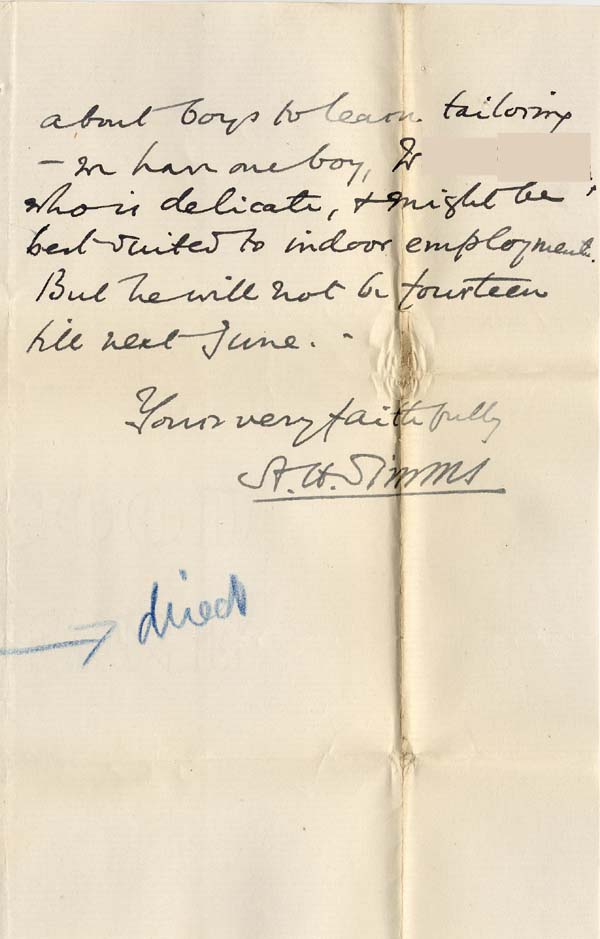 about boys to learn tailoring
– we have one boy, W
who is delicate, & might be
best suited to indoor employment.
But he will not be fourteen
till next June. -
Yours very faithfully
A. H. Simms
direct